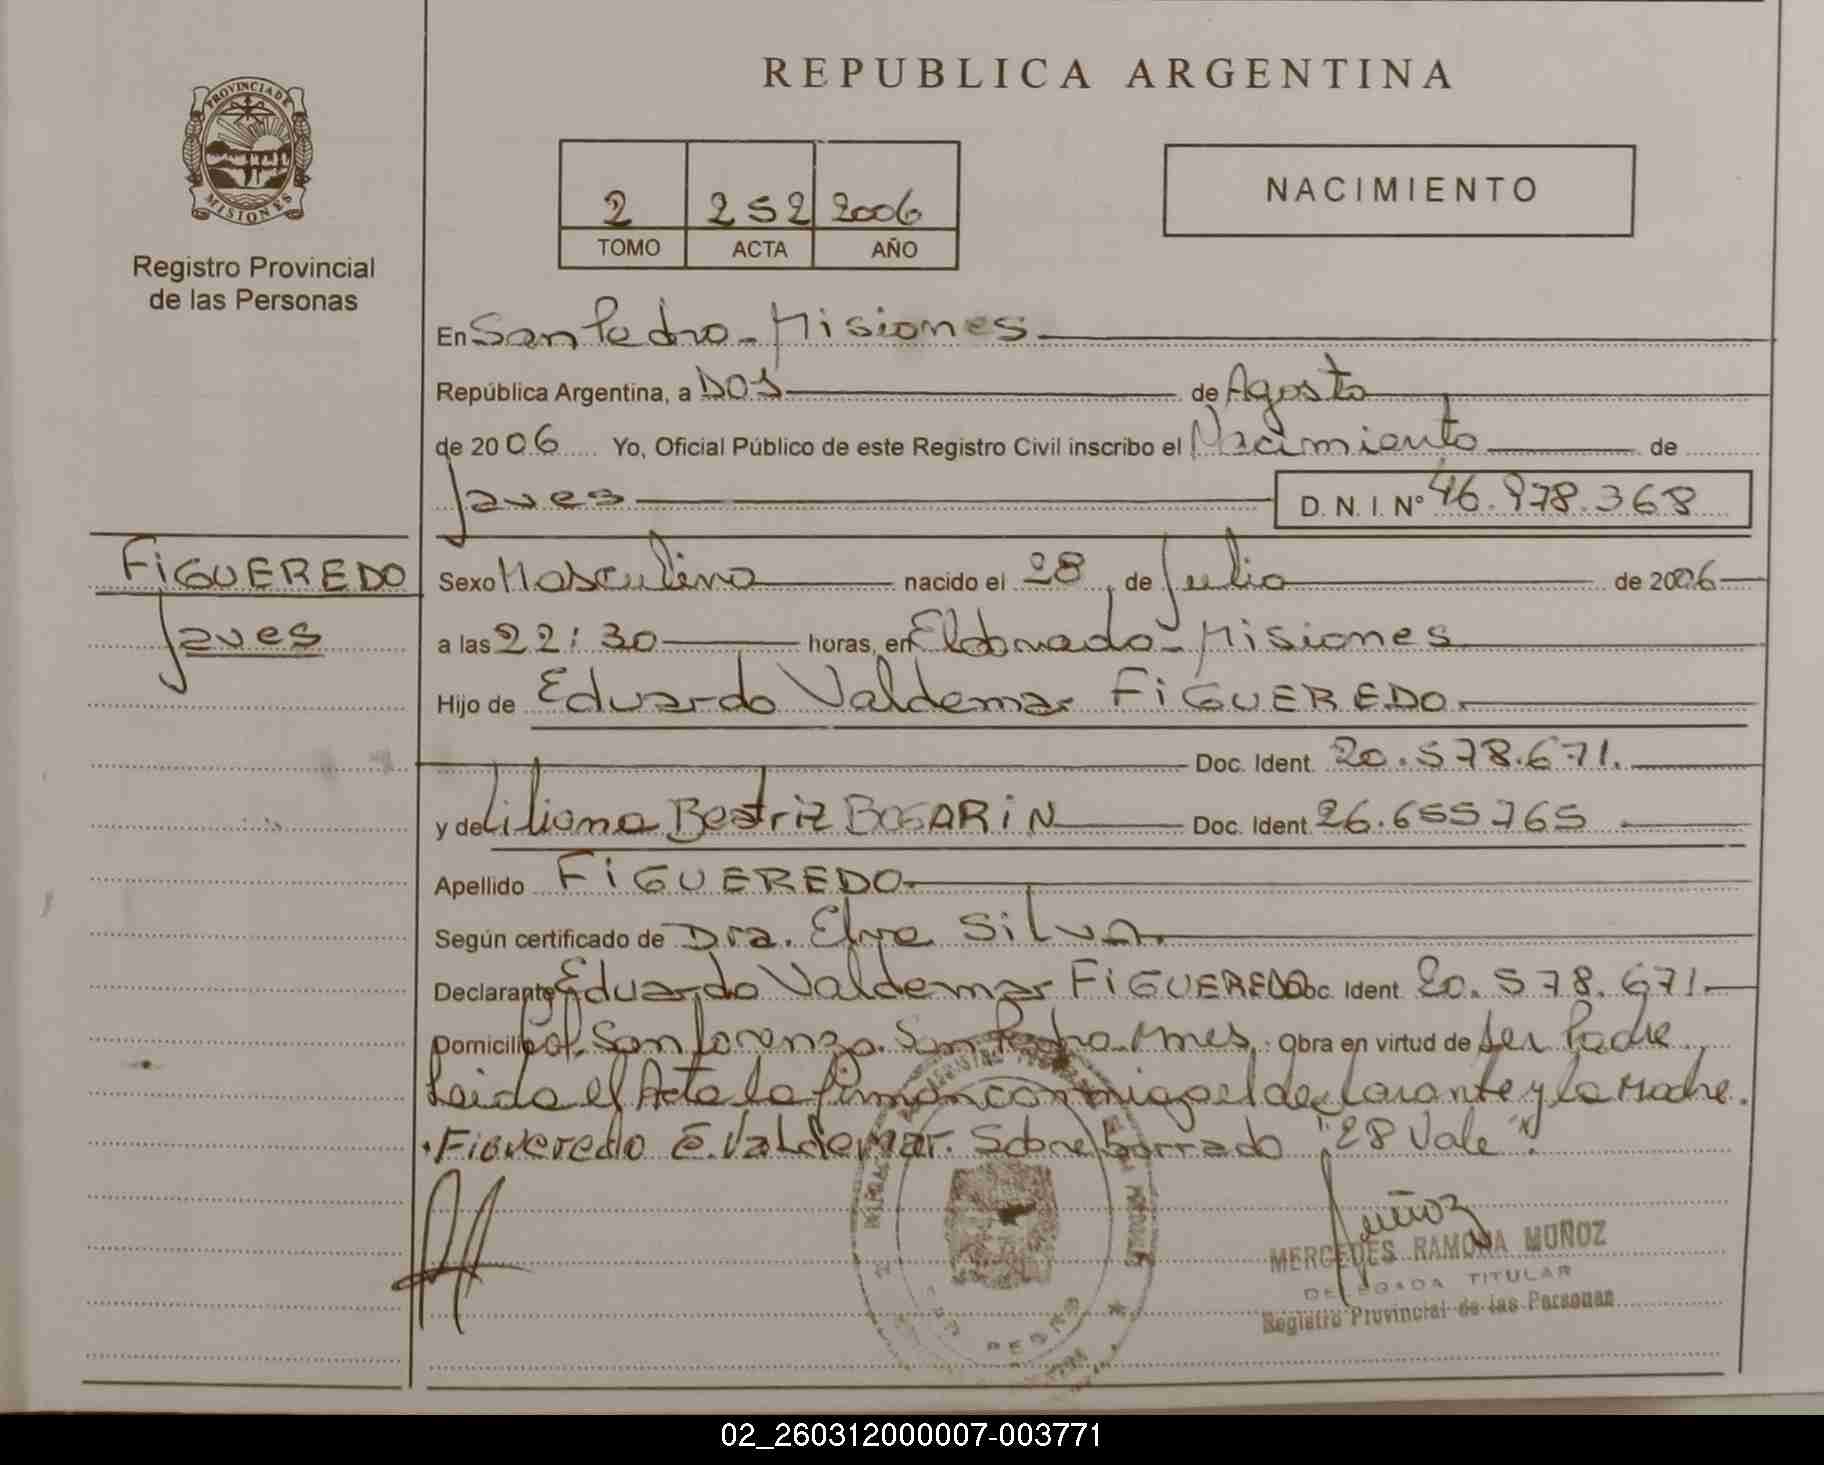 REPUBLICA ARGENTINA
PROVINCIA DE
MISIONES
Registro Provincial
de las Personas
2 252 2006
TOMO ACTA AÑO
NACIMIENTO
En San Pedro - Misiones
República Argentina, a Dos de Agosto
de 2006 Yo, Oficial Público de este Registro Civil inscribo el Nacimiento de
Javes D.N.I. Nº 46.978.368
FiGUEREDO
Javes
Sexo Masculino nacido el 28 de Julio de 2006
a las 22:30 horas, en Eldorado - Misiones
Hijo de Eduardo Valdemar FiGUEREDO
Doc. Ident. 20.578.671.
y de Liliana Beatriz BOGARiN Doc. Ident. 26.655765
Apellido FiGUEREDO
Según certificado de Dra. Elva Silva.
Declarante Eduardo Valdemar FiGUEREDO Doc. Ident. 20.578.671.
Domicilio Col. San Lorenzo. San Pedro. Mnes. Obra en virtud de Ser Padre
Leida el Acta la firman conmigo el declarante y la Madre.
Figueredo E. Valdemar. Sobre borrado "28 Vale".
Muñoz
MERCEDES RAMONA MUÑOZ
DELEGADA TITULAR
Registro Provincial de las Personas
SAN PEDRO
02_260312000007-003771